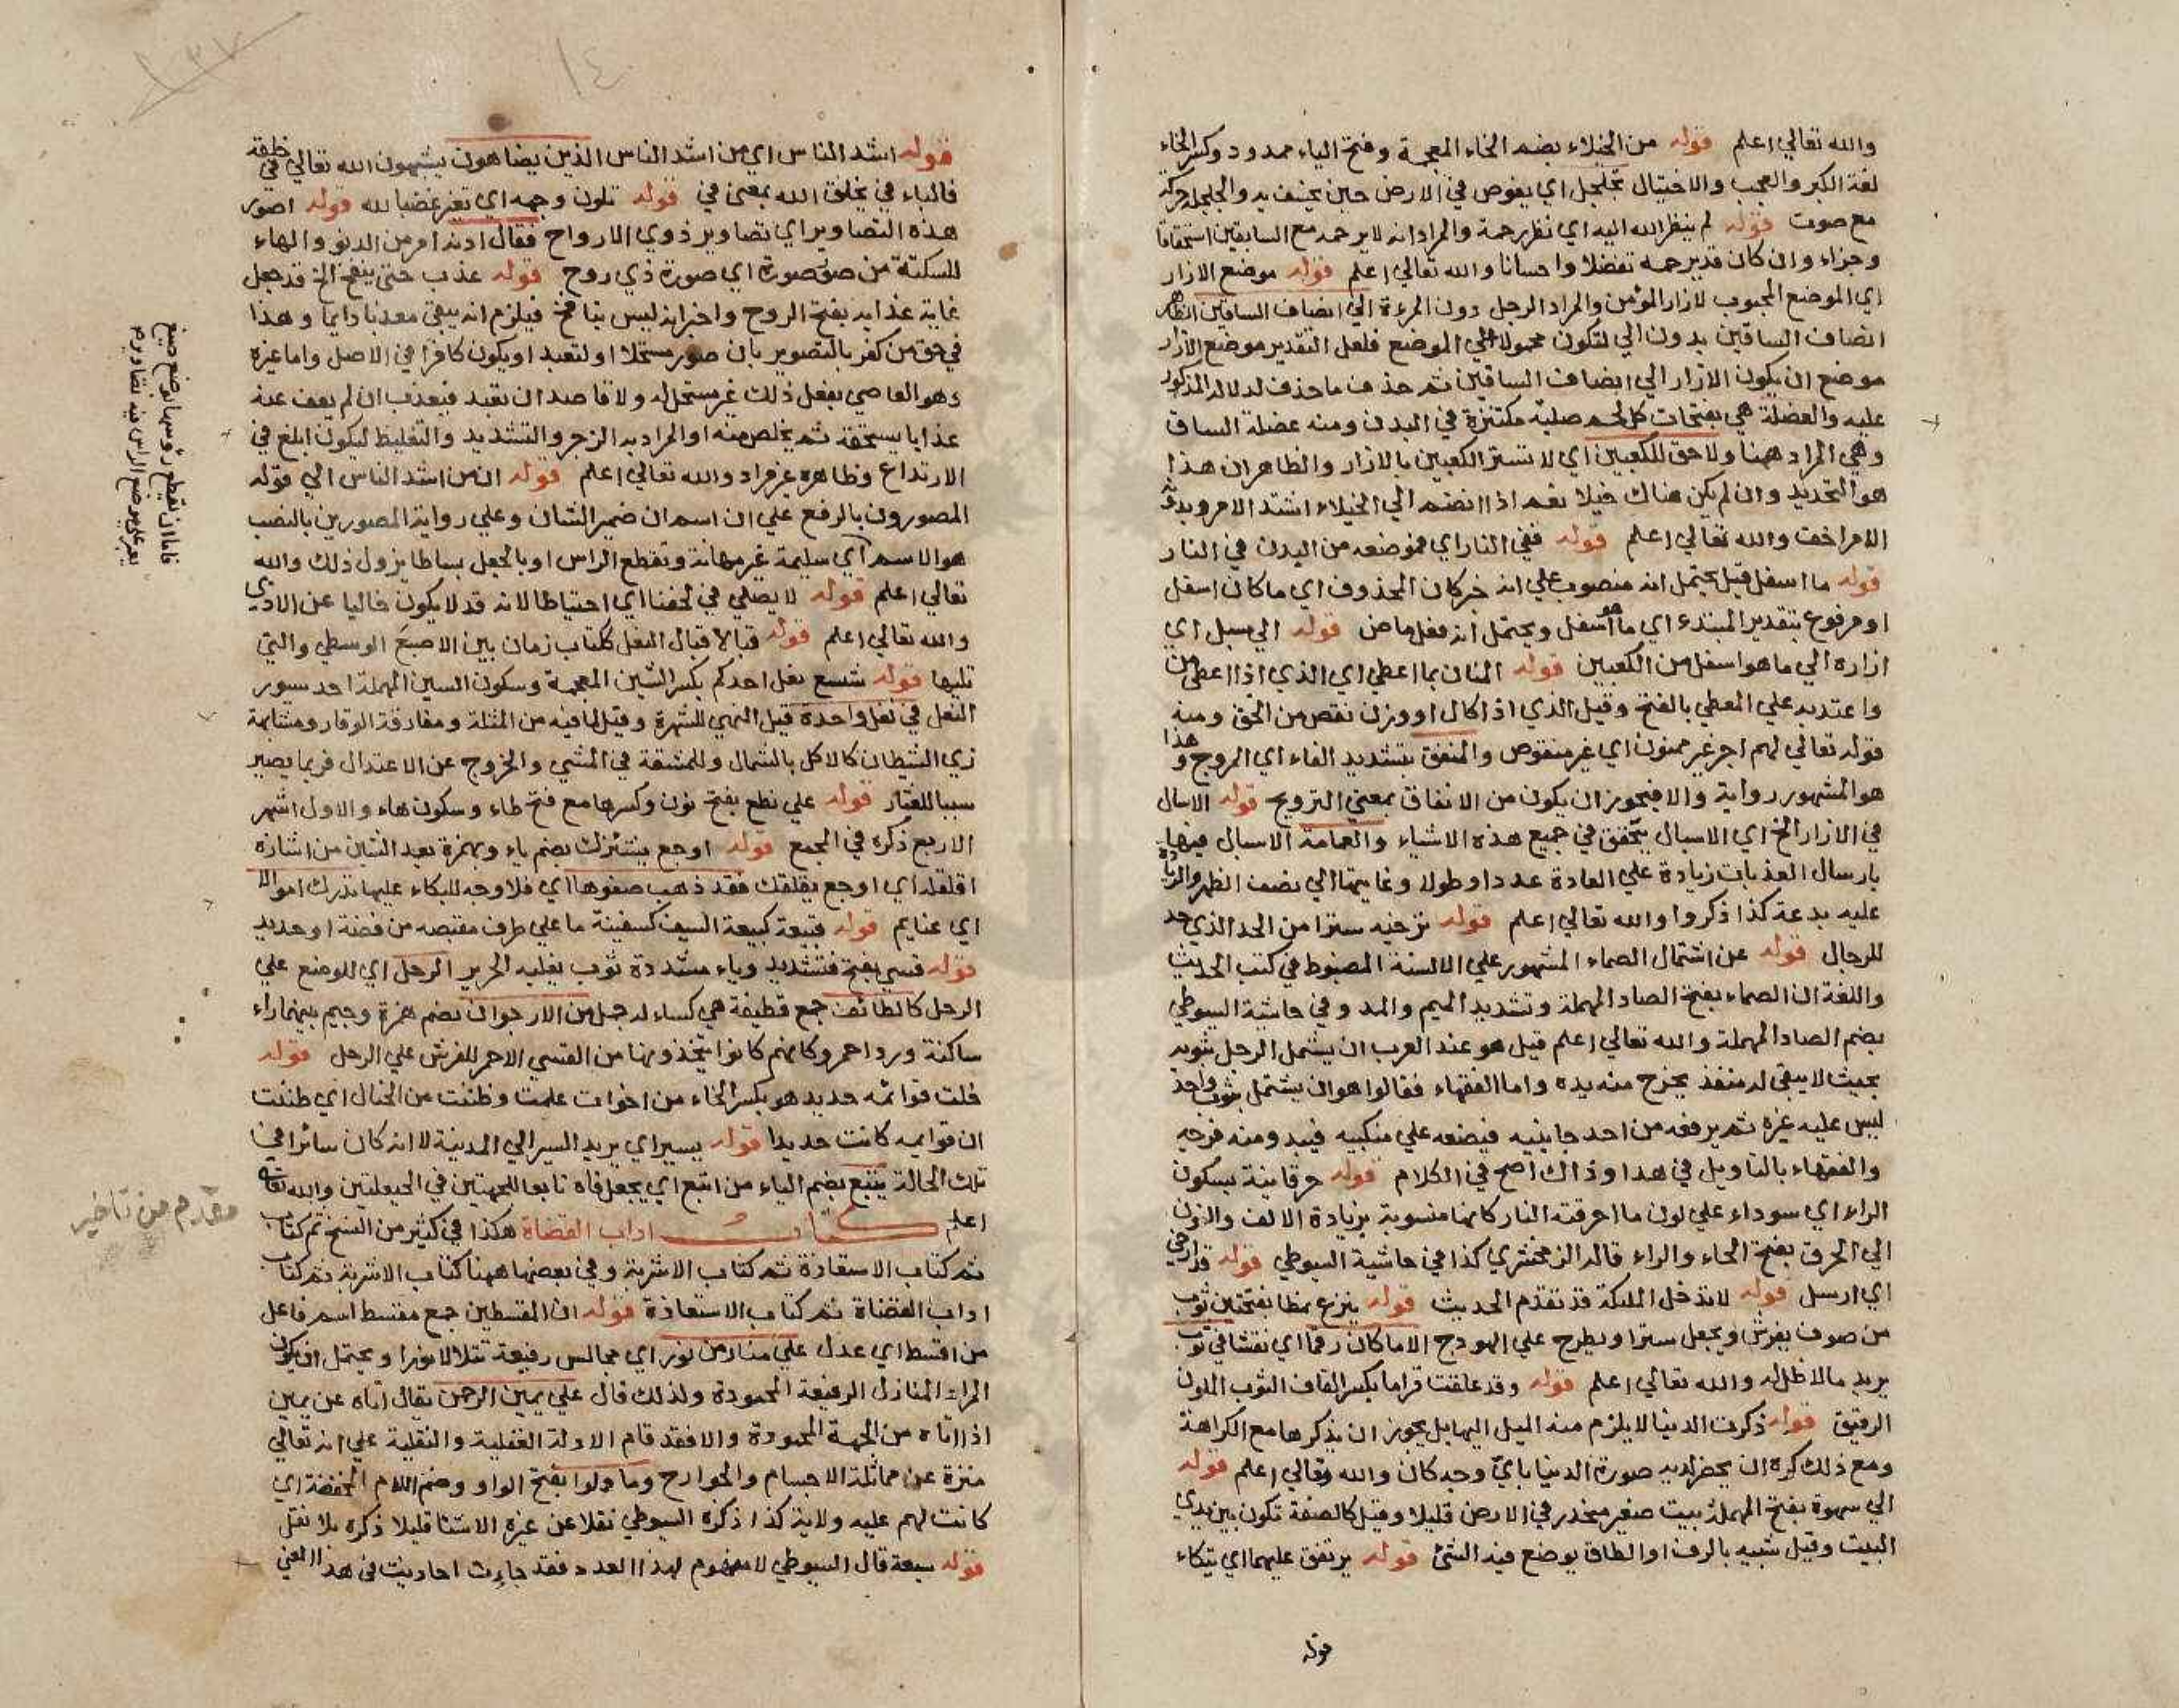 والله تعالى اعلم قوله من الخيلاء بضم الخاء المعجمة وفتح الياء ممدود وكسر الخاء
لغة الكبر والعجب والاختيال يتجلجل اي يغوص في الارض حين يخسف به والجلجلة حركة
مع صوت قوله لم ينظر الله اليه اي نظر رحمة والمراد انه لا يرحمه مع السابقين استحقاقا
وجزاء وان كان قد يرحمه تفضلا واحسانا والله تعالى اعلم قوله موضع الازار
اي الموضع المحبوب لازار المؤمن والمراد الرجل دون المرءة الي انصاف الساقين الظاهر
انصاف الساقين بدون الي لتكون محمولا علي الموضع فلعل التقدير موضع الازار
موضع ان يكون الازار الي انصاف الساقين ثم حذف ما حذف لدلالة المذكور
عليه والعضلة هي بفتحات كل لحم صلبة مكتنزة في البدن ومنه عضلة الساق
وهي المراد ههنا ولا حق للكعبين اي لا تستر الكعبين بالازار والظاهر ان هذا
هو التحديد وان لم يكن هناك خيلا نعم اذا انضم الي الخيلاء اشتد الامر وبدونه
الامر اخف والله تعالى اعلم قوله ففي النار اي فموضعه من البدن في النار
قوله ما اسفل قيل يحتمل انه منصوب علي انه خبر كان المحذوف اي ما كان اسفل
او مرفوع بتقدير المبتدء اي ما هو اسفل ويحتمل انه فعل ماض قوله الي سبل اي
ازاره الي ما هو اسفل من الكعبين قوله المنان بما اعطي اي الذي اذا اعطي من
واعتد به علي المعطي بالفتح وقيل الذي اذا كال او وزن نقص من الحق ومنه
قوله تعالي لهم اجر غير ممنون اي غير منقوص والمنفق بتشديد الفاء اي المروج وهذا
هو المشهور رواية والا فيجوز ان يكون من الانفاق بمعني الترويج قوله الاسبال
في الازار الخ اي الاسبال يتحقق في جميع هذه الاشياء والعمامة الاسبال فيها
بارسال العذبات زيادة علي العادة عددا وطولا وغايتها الي نصف الظهر والزيادة
عليه بدعة كذا ذكروا والله تعالي اعلم قوله ترخينه سترا من الحد الذي حد
للرجال قوله عن اشتمال الصماء المشهور علي الالسنة المضبوط في كتب الحديث
واللغة ان الصماء بفتح الصاد المهملة وتشديد الميم والمد وفي حاشية السيوطي
بضم الصاد المهملة والله تعالي اعلم قيل هو عند العرب ان يشتمل الرجل بثوبه
بحيث لا يبقي له منفذ يخرج منه يده واما الفقهاء فقالوا هو ان يشتمل بثوب واحد
ليس عليه غيره ثم يرفعه من احد جانبيه فيضعه علي منكبيه فيبدو منه فرجه
والفقهاء بالتاويل في هذا وذاك اصح في الكلام قوله حرقانية بسكون
الراء اي سوداء علي لون ما احرقته النار كانها منسوبة بزيادة الالف والنون
الي الحرق بفتح الحاء والراء قاله الزمخشري كذا في حاشية السيوطي قوله قد ارخي
اي ارسل قوله لا تدخل الملئكة قد تقدم الحديث قوله ينزع نمطا بفتحتين ثوب
من صوف يفرش ويجعل سترا ويطرح علي الهودج الا ما كان رقما اي نقشا في ثوب
يريد ما لا ظل له والله تعالي اعلم قوله وقد علقت قراما بكسر القاف الثوب الملون
الرقيق قوله ذكرت الدنيا لا يلزم منه الميل اليها بل يجوز ان يذكرها مع الكراهة
ومع ذلك كره ان يحضر لديه صورة الدنيا باي وجه كان والله تعالي اعلم قوله
الي سهوة بفتح المهملة بيت صغير منحدر في الارض قليلا وقيل كالصفة تكون بين يدي
البيت وقيل شبيه بالرف او الطاق يوضع فيه الشئ قوله يرتفق عليهما اي يتكاء
قوله
١٤
١٣٧
قوله اشد الناس اي من اشد الناس الذين يضاهون يشبهون الله تعالي في خلقه
فالباء في بخلق الله بمعني في قوله تلون وجهه اي تغير غضبا لله قوله اصور
هذه التصاوير اي تصاوير ذوي الارواح فقال ادنه امر من الدنو والهاء
للسكتة من صور صورة اي صورة ذي روح قوله عذب حتي ينفخ الخ قد جعل
غاية عذابه بفتح الروح واخبر انه ليس بنافخ فيلزم انه يبقي معذبا دايما وهذا
في حق من كفر بالتصوير بان صور مستحلا او لتعبد او يكون كافرا في الاصل واما غيره
وهو العاصي يفعل ذلك غير مستحل له ولا قاصد ان تعبد فيعذب ان لم يعف عنه
عذابا يستحقه ثم يخلص منه او المراد به الزجر والتشديد والتغليظ ليكون ابلغ في
الارتداع وظاهره غير مراد والله تعالي اعلم قوله ان من اشد الناس الي قوله
المصورون بالرفع علي ان اسم ان ضمير الشان وعلي رواية المصورين بالنصب
هو الاسم اي سليمة غير مهانة وتقطع الراس او بالجعل بساطا يزول ذلك والله
تعالي اعلم قوله لا يصلي في لحفنا اي احتياطا لانه قد لا يكون خاليا عن الاذي
والله تعالي اعلم قوله قبالا قبال النعل ككتاب زمان بين الاصبع الوسطي والتي
تليها قوله شسع نعل احدكم بكسر الشين المعجمة وسكون السين المهملة احد سيور
النعل في نعل واحدة قيل النهي للشهرة وقيل لما فيه من المثلة ومفارقة الوقار ومشابهة
زي الشيطان كالاكل بالشمال وللمشقة في المشي والخروج عن الاعتدال فربما يصير
سببا للعثار قوله علي نطع بفتح نون وكسرها مع فتح طاء وسكون هاء والاول اشهر
الاربع ذكره في المجمع قوله اوجع يشئزك بضم ياء وبهمزة بعد الشين من اشازه
اقلقه اي اوجع يقلقك فقد ذهب صفوها اي فلا وجه للبكاء عليها تدرك اموالا
اي غنايم قوله قبيعة كبيعة السيف كسفينة ما علي طرف مقبضه من فضة او حديد
قوله قسي بفتح فتشديد وياء مشددة ثوب يغلبه الحرير الرحل اي للوضع علي
الرحل كالقطائف جمع قطيفة هي كساء له خمل من الارجوان بضم همزة وجيم بينهما راء
ساكنة ورد احمر وكانهم كانوا يتخذونها من القسي الاحمر للفرش علي الرحل قوله
خلت قوائمه حديد هو بكسر الخاء من اخوات علمت وظننت من الخيال اي ظننت
ان قوايمه كانت حديدا قوله يسير اي يريد السير الي المدينة لا انه كان سائرا في
تلك الحالة يتبع بضم الياء من اتبع اي يجعل فاه تابعا للجهتين في الحيعلتين والله تعالي
اعلم كتاب اداب القضاة هكذا في كثير من النسخ ثم كتاب
ثم كتاب الاستعاذة ثم كتاب الاشربة وفي بعضها ههنا كتاب الاشربة ثم كتاب
اداب القضاة ثم كتاب الاستعاذة قوله ان المقسطين جمع مقسط اسم فاعل
من اقسط اي عدل علي منابر من نور اي مجالس رفيعة تتلالا نورا ويحتمل ان يكون
المراد المنازل الرفيعة المحمودة ولذلك قال علي يمين الرحمن يقال اتاه عن يمين
اذا اتاه من الجهة المحمودة والا فقد قام الادلة العقلية والنقلية علي انه تعالي
منزه عن مماثلة الاجسام والجوارح وما ولوا بفتح الواو وضم اللام المخففة اي
كانت لهم عليه ولاية كذا ذكره السيوطي نقلا عن غيره الا شئا قليلا ذكره بلا نقل
قوله سبعة قال السيوطي لا مفهوم لهذا العدد فقد جاءت احاديث في هذا المعني
فاما ان تقطع رؤسها لوضع صبغ
يغير علي موضع الراس منه تصاويرهم
مقدم من تاخير